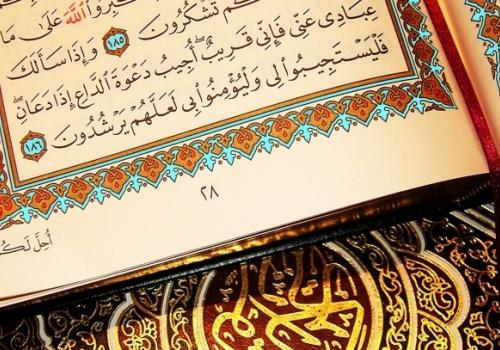 كبروا الله على ما
كم تشكرون ١٨٥ وإذا سألك
عبادي عني فإني قريب أجيب دعوة الداع إذا دعان
فليستجيبوا لي وليؤمنوا بي لعلهم يرشدون ١٨٦
٢٨
أحل لكم